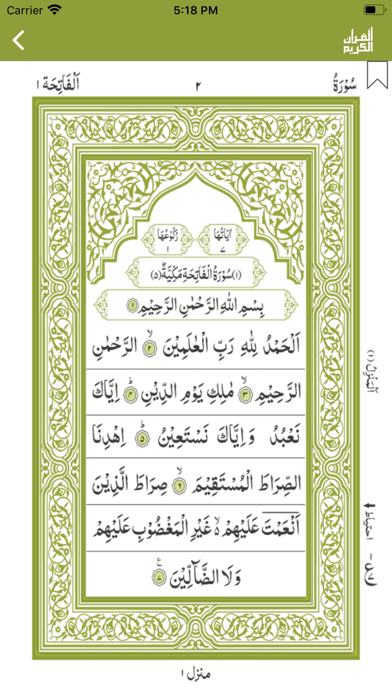 Carrier 5:18 PM
القرآن الكريم
سُوْرَةُ ٢ اَلْفَاتِحَة ١
اٰيَاتُهَا ٧ رُكُوْعُهَا ١
(١) سُوْرَةُ الْفَاتِحَةِ مَكِّيَّةٌ (٥)
بِسْمِ اللّٰهِ الرَّحْمٰنِ الرَّحِيْمِ ١
اَلْحَمْدُ لِلّٰهِ رَبِّ الْعٰلَمِيْنَ ۙ ٢ الرَّحْمٰنِ
الرَّحِيْمِ ۙ ٣ مٰلِكِ يَوْمِ الدِّيْنِ ؕ ٤ اِيَّاكَ
نَعْبُدُ وَ اِيَّاكَ نَسْتَعِيْنُ ؕ ٥ اِهْدِنَا
الصِّرَاطَ الْمُسْتَقِيْمَ ۙ ٦ صِرَاطَ الَّذِيْنَ
اَنْعَمْتَ عَلَيْهِمْ ۙ۬ غَيْرِ الْمَغْضُوْبِ عَلَيْهِمْ
وَ لَا الضَّآلِّيْنَ ۠ ٧
اَلْمَنْزِلُ (١)
احتياط
منزل ١